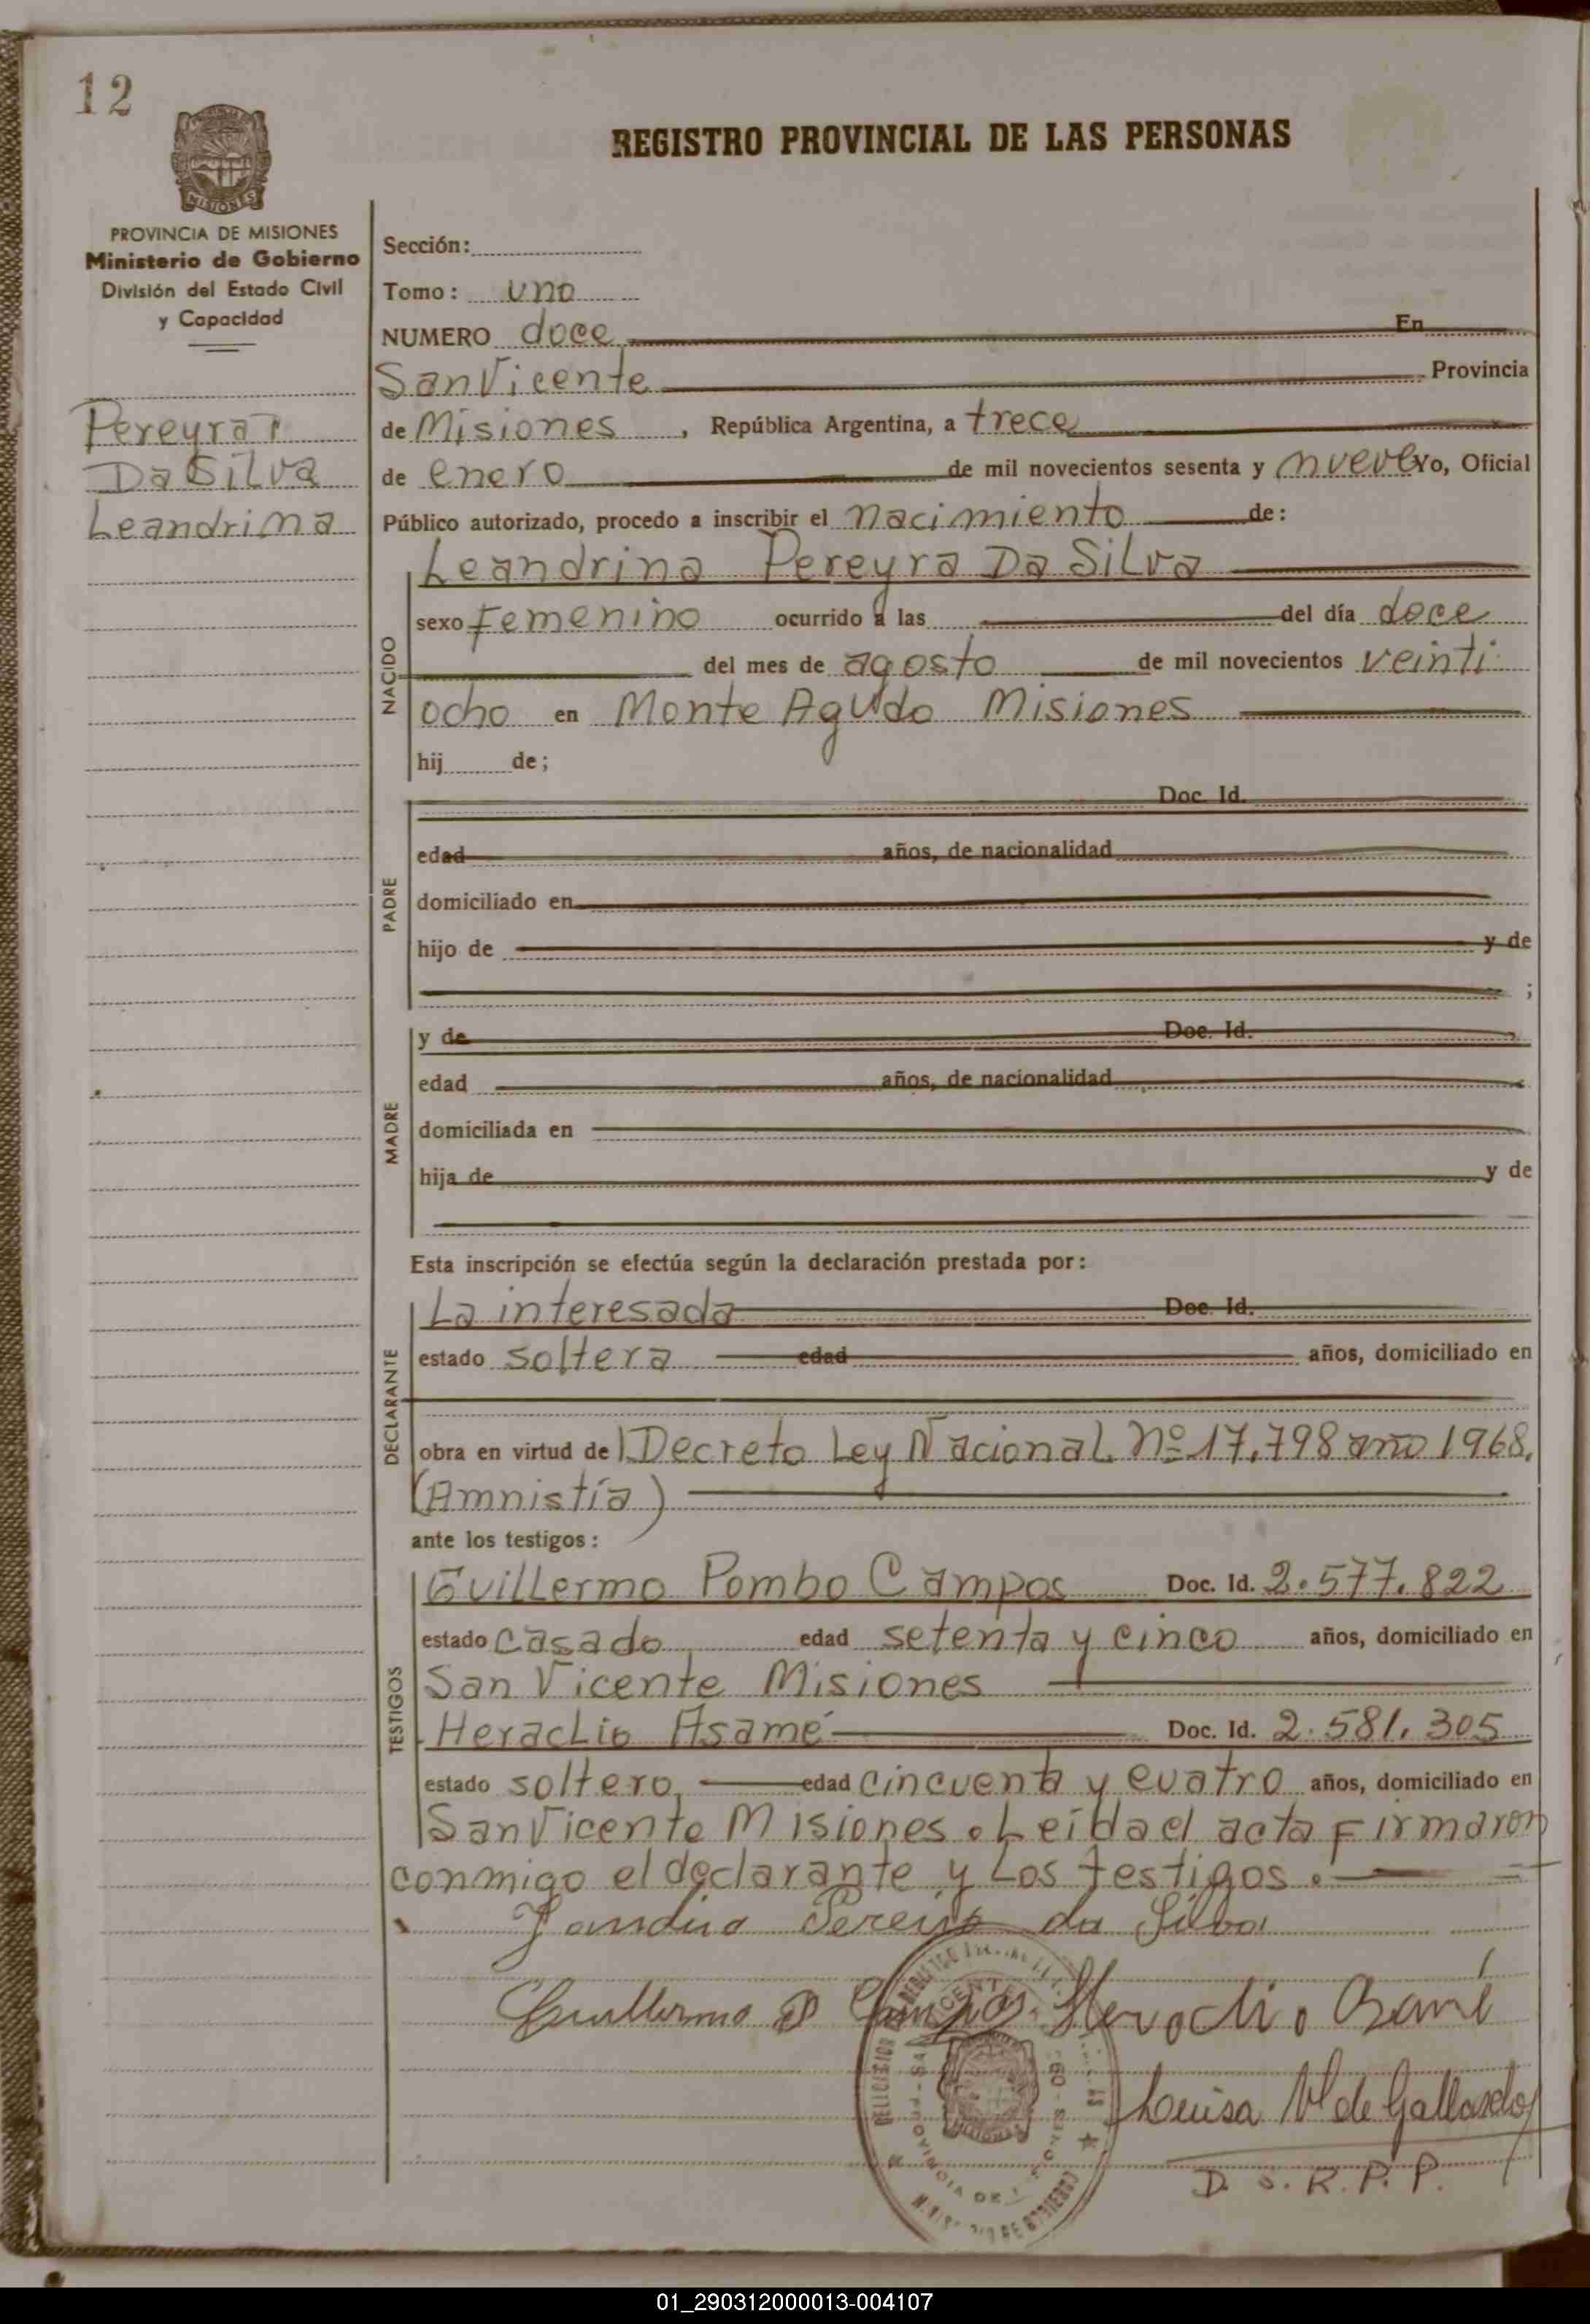 12
REGISTRO PROVINCIAL DE LAS PERSONAS
MISIONES
PROVINCIA DE MISIONES
Ministerio de Gobierno
División del Estado Civil
y Capacidad
Pereyra
Da Silva
Leandrina
Sección:
Tomo: uno
NUMERO doce En
San Vicente Provincia
de Misiones, República Argentina, a trece
de enero de mil novecientos sesenta y nueve Yo, Oficial
Público autorizado, procedo a inscribir el nacimiento de:
NACIDO
Leandrina Pereyra Da Silva
sexo Femenino ocurrido a las del día doce
del mes de agosto de mil novecientos veinti
ocho en Monte Agudo Misiones
hij de;
PADRE
Doc. Id.
edad años, de nacionalidad
domiciliado en
hijo de y de
;
MADRE
y de Doc. Id.
edad años, de nacionalidad
domiciliada en
hija de y de
Esta inscripción se efectúa según la declaración prestada por:
DECLARANTE
La interesada Doc. Id.
estado soltera edad años, domiciliado en
obra en virtud de Decreto Ley Nacional Nº 17.798 año 1968.
(Amnistía)
ante los testigos:
TESTIGOS
Guillermo Pombo Campos Doc. Id. 2.577.822
estado casado edad setenta y cinco años, domiciliado en
San Vicente Misiones
Heraclio Asamé Doc. Id. 2.581.305
estado soltero, edad cincuenta y cuatro años, domiciliado en
San Vicente Misiones. Leída el acta Firmaron
conmigo el declarante y Los testigos.
Pereira da Silva
Guillermo P Campos Heraclio Asamé
Luisa V de Gallardo
D. S. R. P. P.
01_290312000013-004107